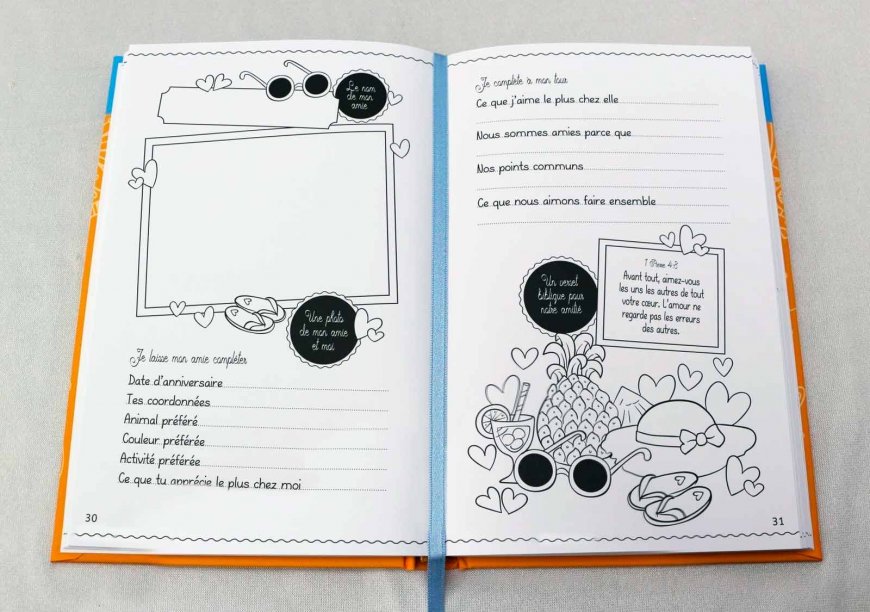 Le nom
de mon
amie
Une photo
de mon amie
et moi
Je laisse mon amie compléter
Date d'anniversaire
Tes coordonnées
Animal préféré
Couleur préférée
Activité préférée
Ce que tu apprécie le plus chez moi
30
Je complète à mon tour
Ce que j'aime le plus chez elle
Nous sommes amies parce que
Nos points communs
Ce que nous aimons faire ensemble
Un verset
biblique pour
notre amitié
1 Pierre 4:8
Avant tout, aimez-vous
les uns les autres de tout
votre cœur. L'amour ne
regarde pas les erreurs
des autres.
31